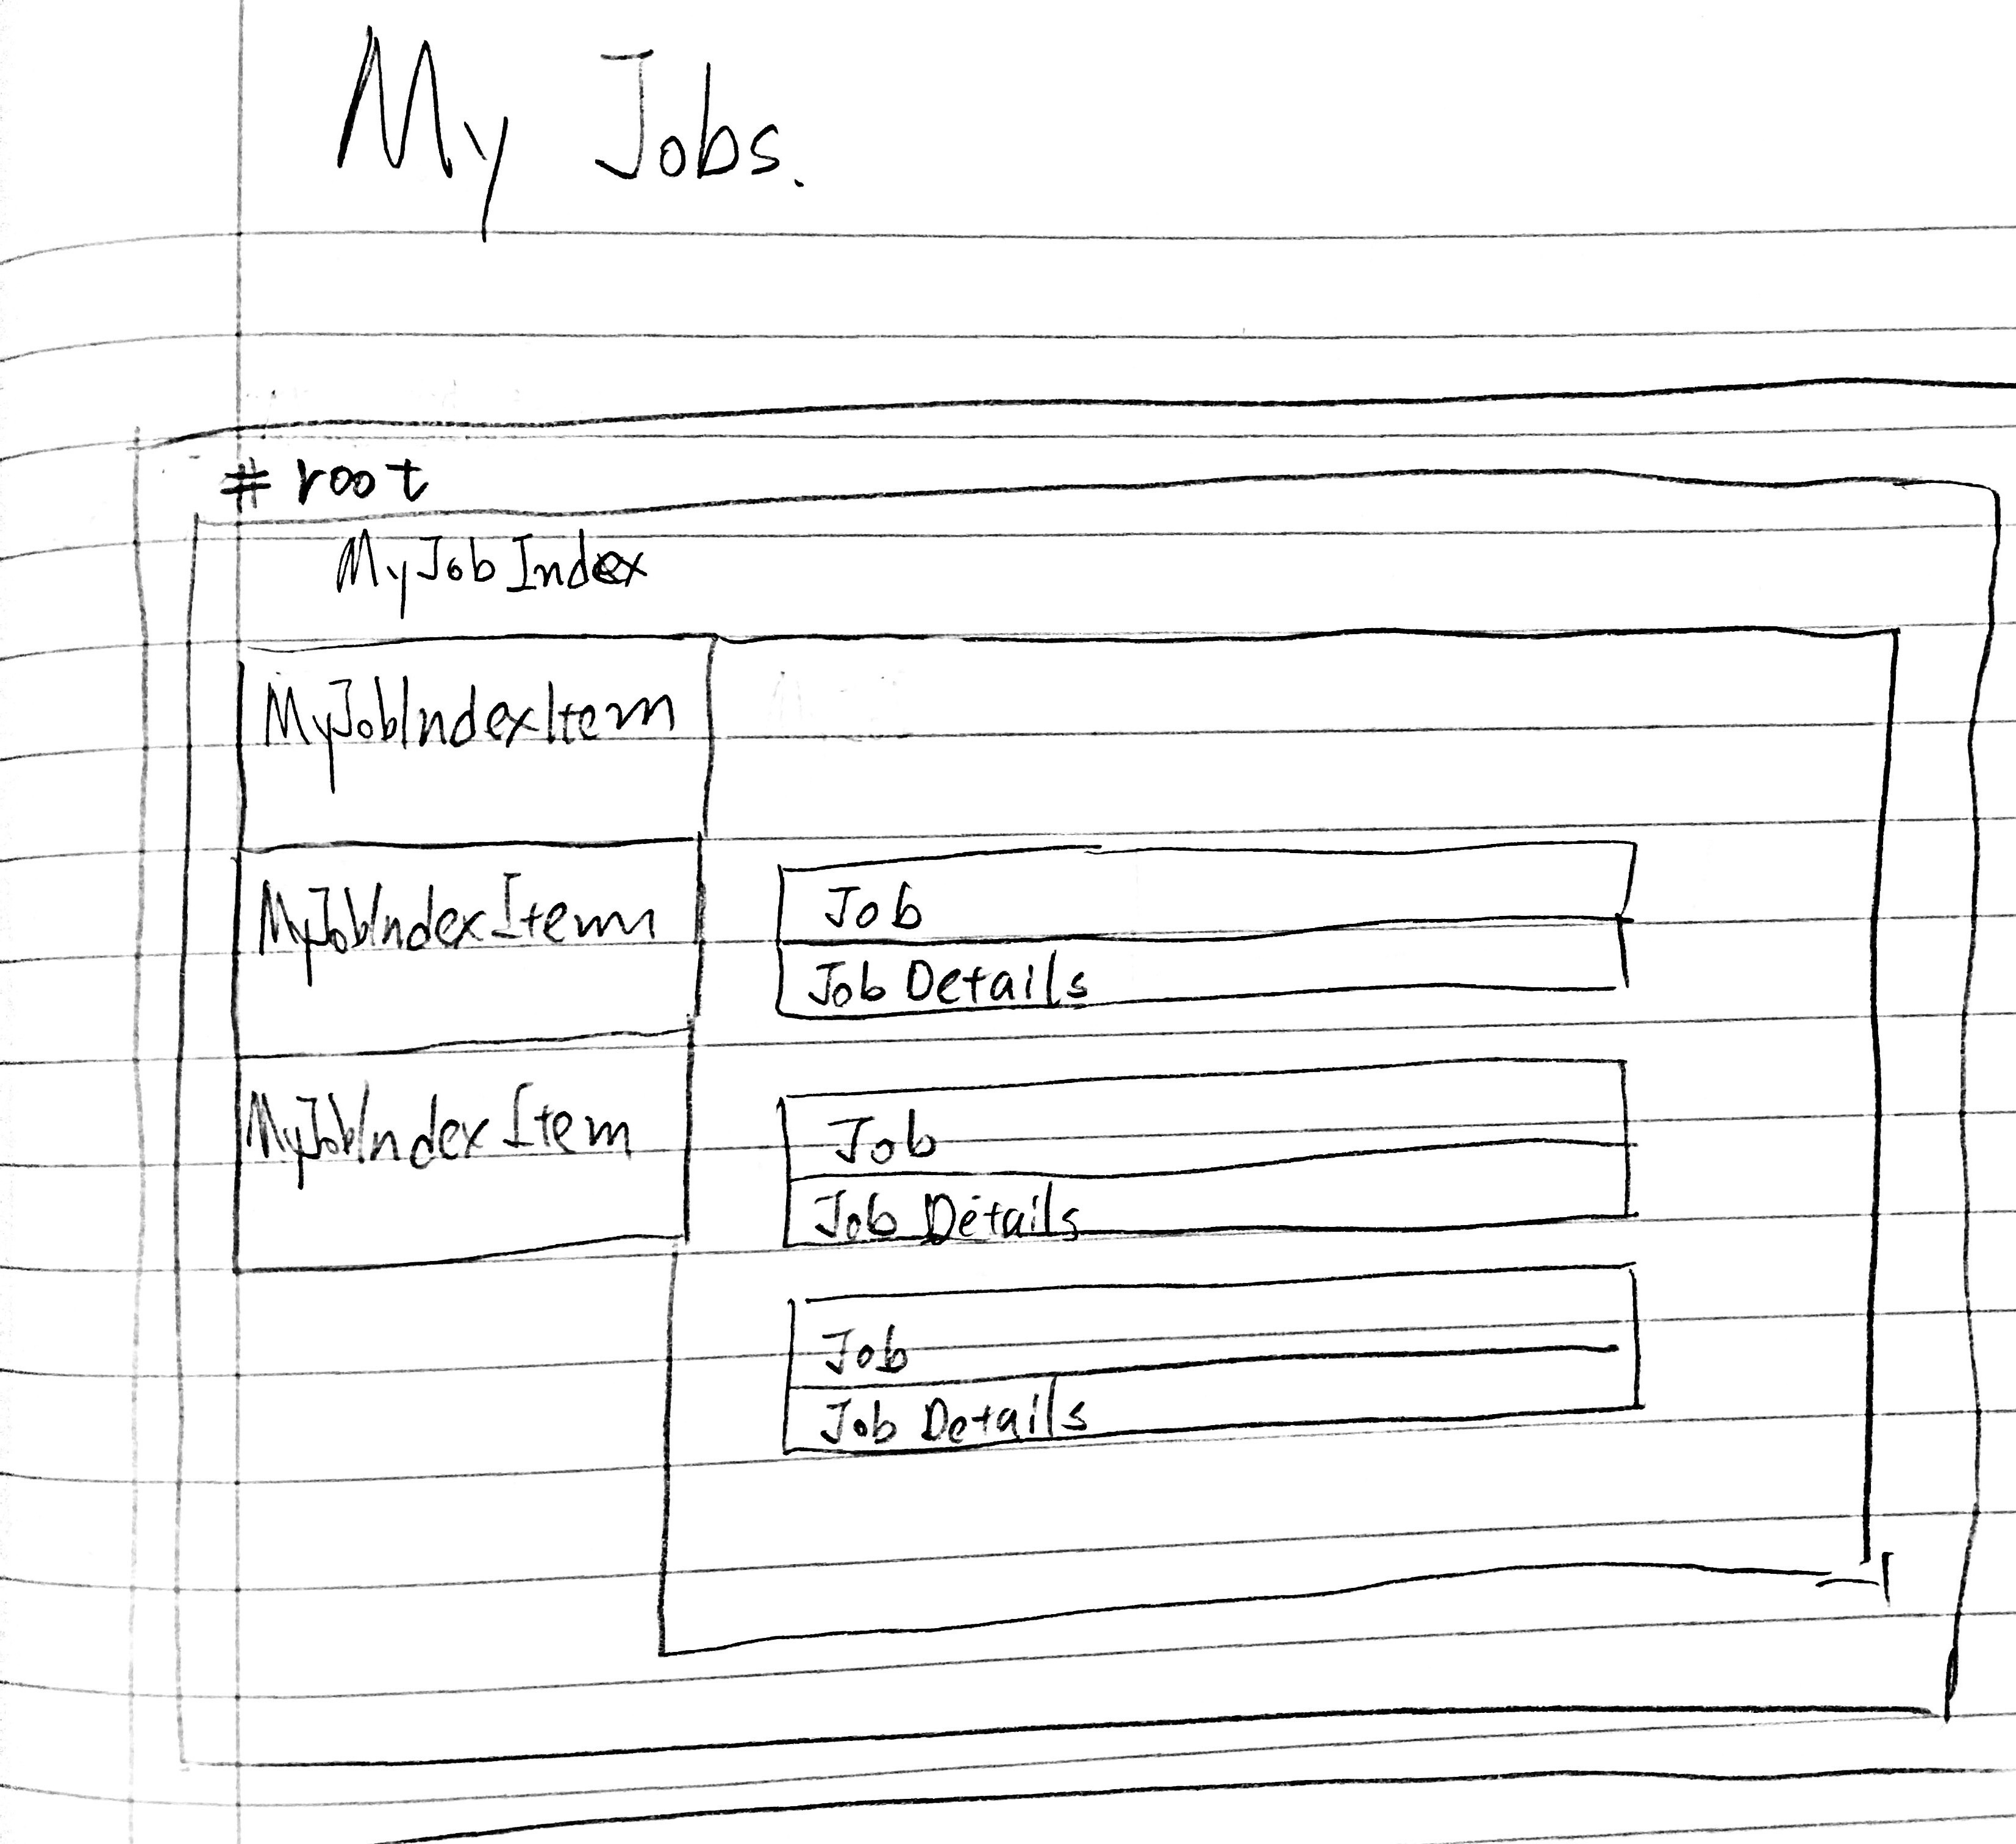 My Jobs.
# root
MyJobIndex
MyJobIndexItem
MyJobIndexItem
MyJobIndexItem
Job
Job Details
Job
Job Details
Job
Job Details